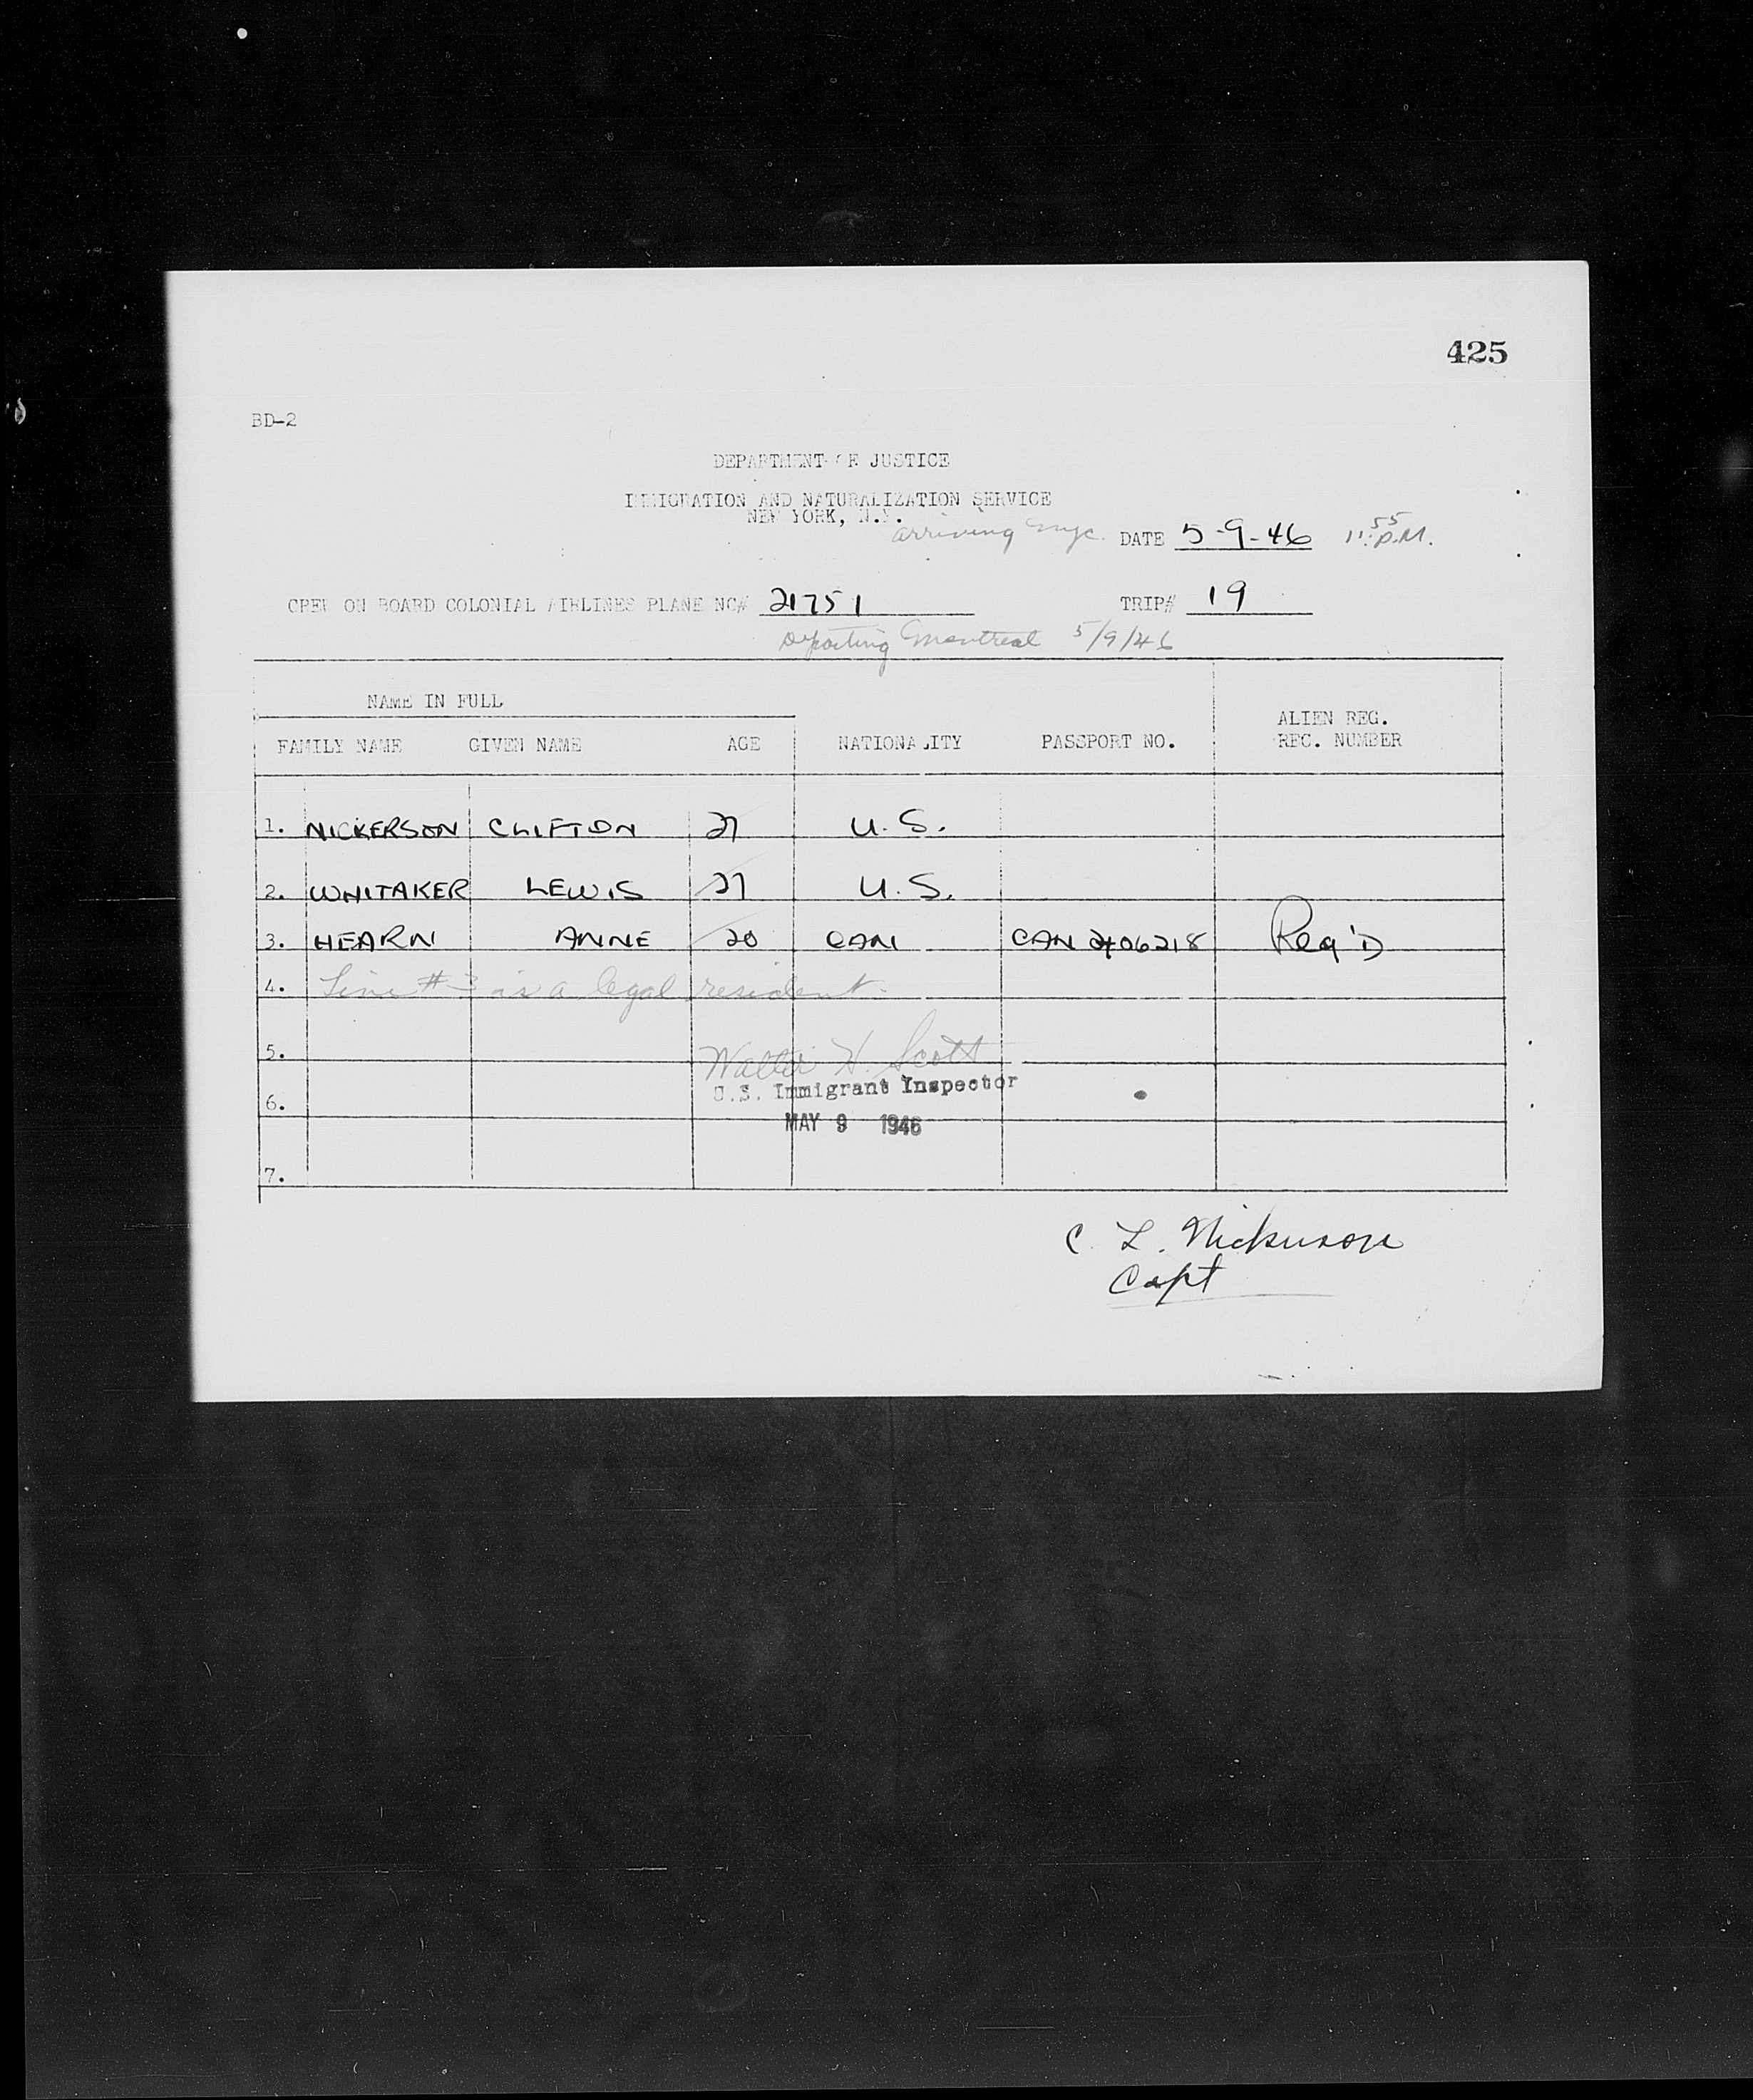 425
BD-2
DEPARTMENT OF JUSTICE
IMMIGRATION AND NATURALIZATION SERVICE
NEW YORK, N.Y.
arriving nyc. DATE 5-9-46 11:55 P.M.
CREW ON BOARD COLONIAL AIRLINES PLANE NC# 21751 TRIP# 19
Departing Montreal 5/9/46
NAME IN FULL
FAMILY NAME GIVEN NAME AGE NATIONALITY PASSPORT NO. ALIEN REG. REC. NUMBER
1. NICKERSON CLIFTON 27 U.S.
2. WHITAKER LEWIS 27 U.S.
3. HEARN ANNE 20 CAN CAN 2406218 Reg'D
4. Line #3 is a legal resident.
5. Walter H. Scott
U.S. Immigrant Inspector
6.
MAY 9 1946
7.
C. L. Nickerson
Capt